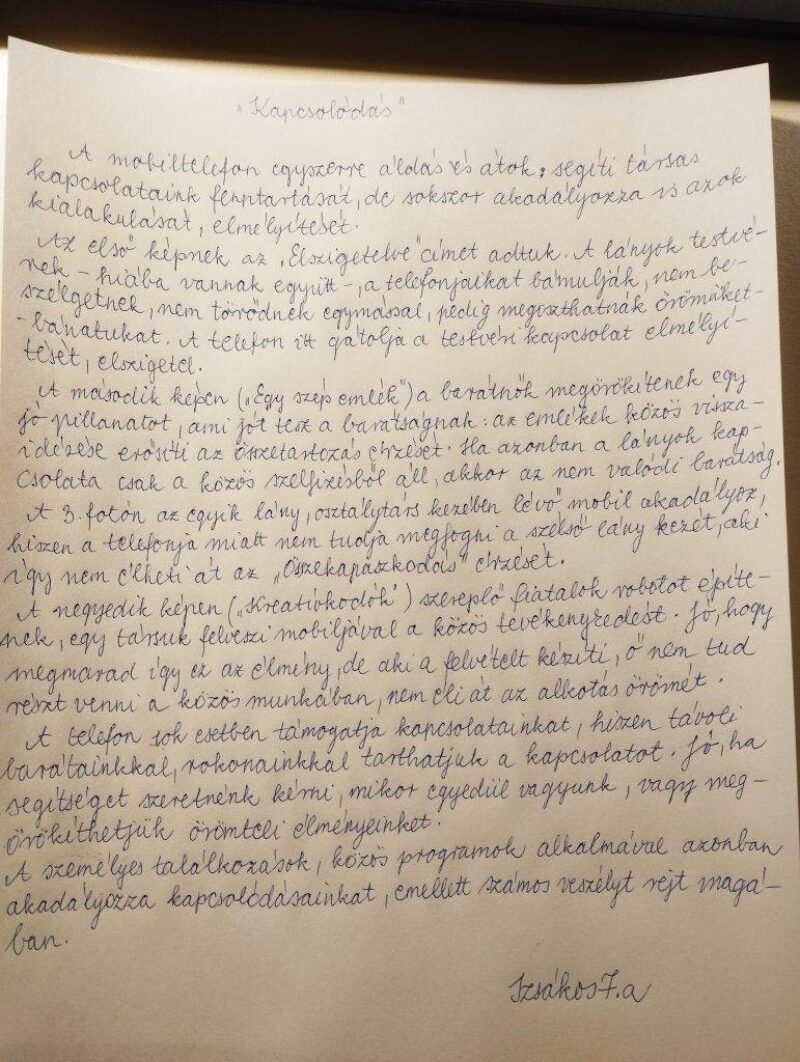 „Kapcsolódás"
A mobiltelefon egyszerre áldás és átok; segíti társas
kapcsolataink fenntartását, de sokszor akadályozza is azok
kialakulását, elmélyítését.
Az első képnek az „Elszigetelve" címet adtuk. A lányok testvé-
rek – hiába vannak együtt –, a telefonjaikat bámulják, nem be-
szélgetnek, nem törődnek egymással, pedig megoszthatnák örömüket-
-bánatukat. A telefon itt gátolja a testvéri kapcsolat elmélyí-
tését, elszigetel.
A második képen („Egy szép emlék") a barátnők megörökítenek egy
jó pillanatot, ami jót tesz a barátságnak: az emlékek közös vissza-
idézése erősíti az összetartozás érzését. Ha azonban a lányok kap-
csolata csak a közös szelfizésből áll, akkor az nem valódi barátság.
A 3. fotón az egyik lány, osztálytárs kezében lévő mobil akadályoz,
hiszen a telefonja miatt nem tudja megfogni a szélső lány kezét, aki
így nem élheti át az „Összekapaszkodás" érzését.
A negyedik képen („Kreatívkodók") szereplő fiatalok robotot építe-
nek, egy társuk felveszi mobiljával a közös tevékenykedést. Jó, hogy
megmarad így ez az élmény, de aki a felvételt készíti, ő nem tud
részt venni a közös munkában, nem éli át az alkotás örömét.
A telefon sok esetben támogatja kapcsolatainkat, hiszen távoli
barátainkkal, rokonainkkal tarthatjuk a kapcsolatot. Jó, ha
segítséget szeretnénk kérni, mikor egyedül vagyunk, vagy meg-
örökíthetjük örömteli élményeinket.
A személyes találkozások, közös programok alkalmával azonban
akadályozza kapcsolódásainkat, emellett számos veszélyt rejt magá-
ban.
Izsákos 7.a